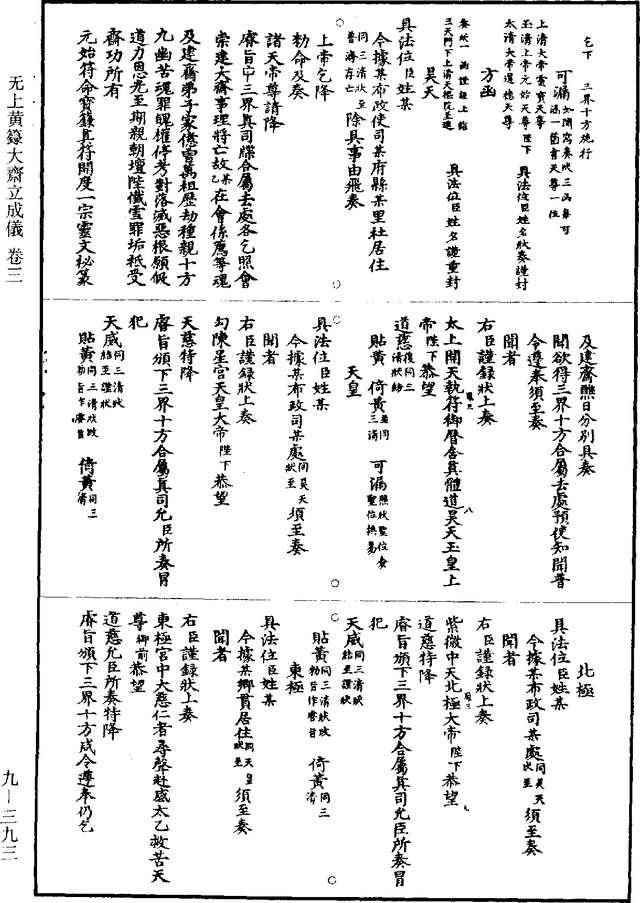 乞下　三界十方施行
可漏 如開寫奏狀三函每可漏一箇書天尊一位
上清大帝靈寶天尊
玉清上帝元始天尊陛下　具法位臣姓名狀奏謹封
太清大帝道德天尊
方函
奏狀一函謹謹上詣
三天門下上清天樞院呈進　具法位臣姓名謹重封
昊天
具法位臣姓某
今據某布政使司某府縣某里社居住
同三清狀至普海存亡 除具事由飛奏
上帝乞降
勑命及奏
諸天帝尊請降
睿旨申三界真司牒合屬去處各乞照會
崇建大齋事理將亡故某乙在會係薦等魂
及建齋弟子家億曾萬祖歷劫種親十方
九幽苦魂罪魄權停考對落滅惡根願假
道力恩光至期親朝壇陛懺雪罪垢祗受
齋功所有
元始符命寶籙真符開度一宗靈文秘篆
及建齋醮日分別具奏
聞欲得三界十方合屬去處預使知聞普
令遵奉須至奏
聞者
右臣謹錄狀上奏
太上開天執符御曆含真體道昊天玉皇上
帝陛下恭望
道慈 後同三清狀結
貼黃　倚黃 並同三清　可漏 照狀聖位食聖位換易
天皇
具法位臣姓某
今據某布政司某處 同昊天狀至 須至奏
聞者
右臣謹錄狀上奏
勾陳星宮天皇大帝陛下恭望
天慈特降
睿旨頒下三界十方合屬真司允臣所奏冒
犯
天威 同三清狀結至謹狀
貼黃 同三清狀改勑旨作睿旨　倚黃 同三清
北極
具法位臣姓某
今據某布政司某處 同昊天狀至 須至奏
聞者
右臣謹錄狀上奏
紫微中天北極大帝陛下恭望
道慈特降
睿旨頒下三界十方合屬真司允臣所奏冒
犯
天威 同三清狀結至謹狀
貼黃 同三清狀改勑旨作睿旨　倚黃 同三清
東極
具法位臣姓某
今據某鄉貫居住 同天皇狀至 須至奏
聞者
右臣謹錄狀上奏
東極宮中大慈仁者尋聲赴感太乙救苦天
尊御前恭望
道慈允臣所奏特降
睿旨頒下三界十方咸令遵奉仍乞
无上黄籙大齋立成儀　卷三
九—三九三